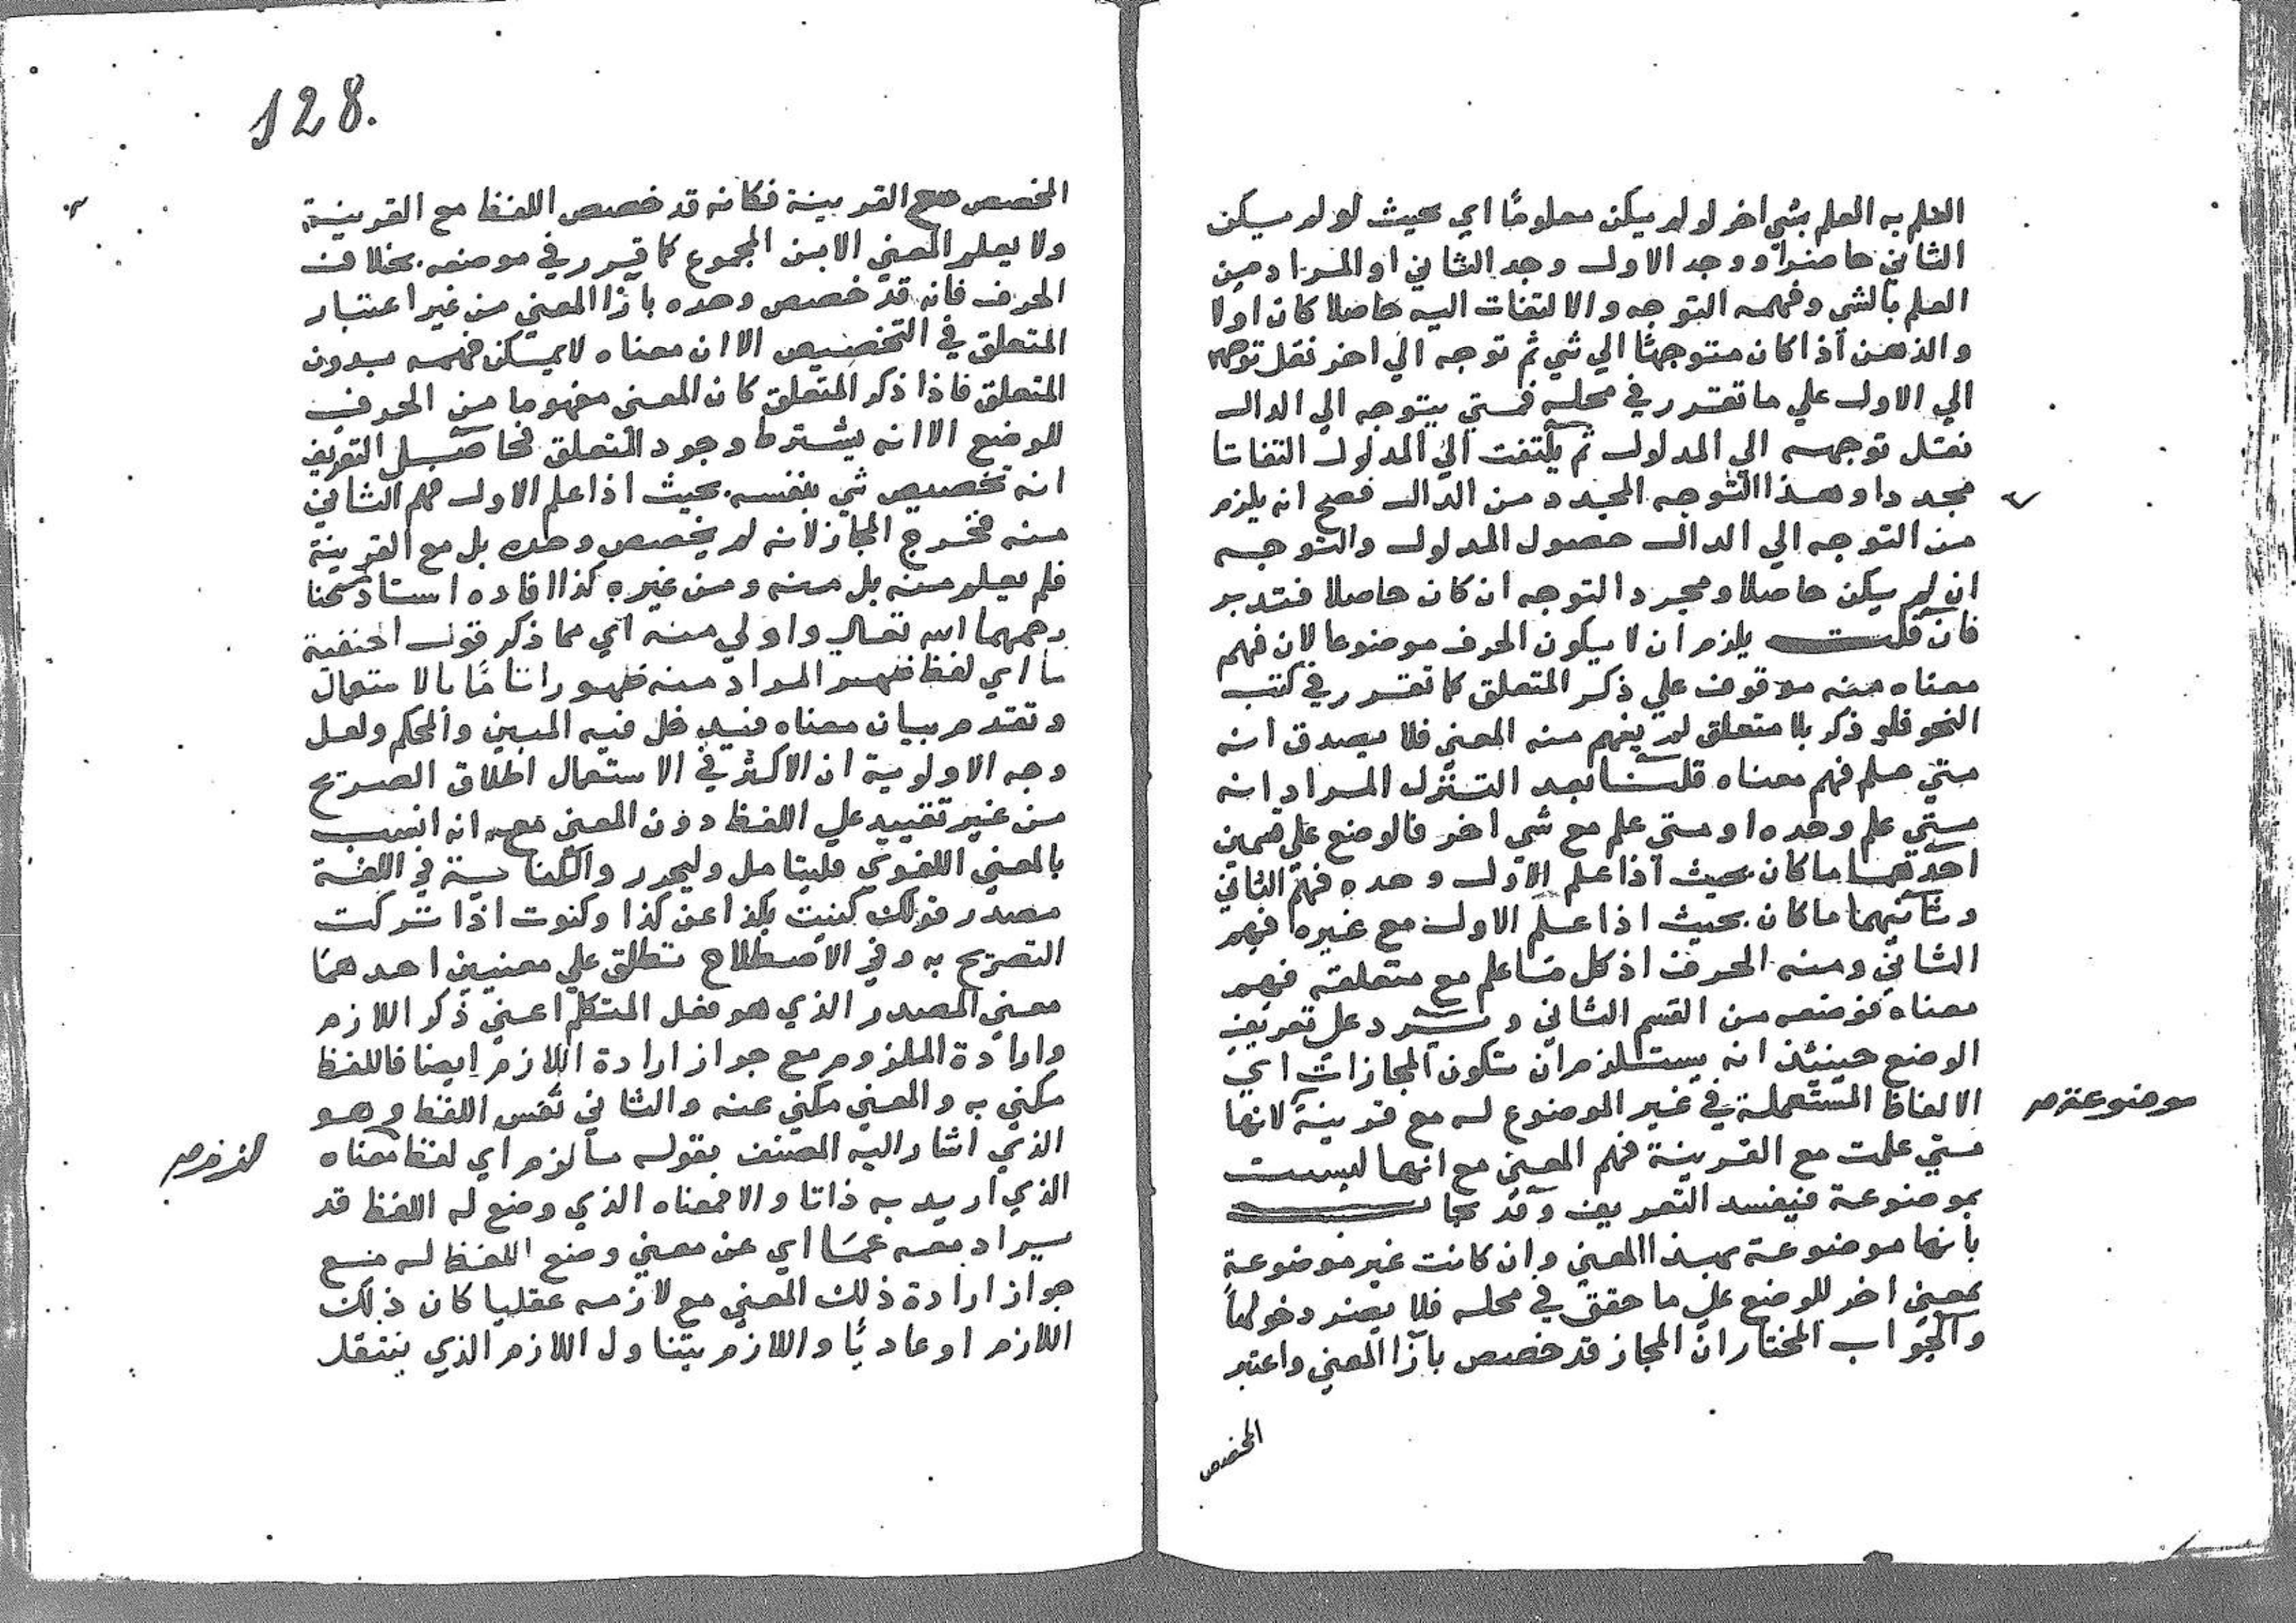 العلم به العلم بشي اخر لو لم يكن معلومًا اي بحيث لو لم يكن
الثاني حاضرا ووجد الاول وجد الثاني او المراد من
العلم بالشي وفهمه التوجه والالتفات اليه حاصلا كان اولا
والذهن اذا كان متوجهًا الي شي ثم توجه الي اخر نقل توجهه
الي الاول علي ما تقرر في محله فمتي يتوجه الي الدال
نقل توجهه الي المدلول ثم يلتفت الي المدلول التفاتا
مجددا وهذا التوجه المجدد من الدال فصح انه يلزم
من التوجه الي الدال حصول المدلول والتوجه
ان لم يكن حاصلا ومجرد التوجه ان كان حاصلا فتدبر
فان قلت يلزم ان لا يكون الحرف موضوعا لان فهم
معناه منه موقوف علي ذكر المتعلق كما تقرر في كتب
النحو فلو ذكر بلا متعلق لم يفهم منه المعني فلا يصدق انه
متي علم فهم معناه قلنا بعد التنزل المراد انه
متي علم وحده او متي علم مع شي اخر فالوضع علي قسمين
احدهما ما كان بحيث اذا علم الاول وحده فهم الثاني
وثانيهما ما كان بحيث اذا علم الاول مع غيره فهم
الثاني ومنه الحرف اذ كل ما علم مع متعلقه فهم
معناه فوضعه من القسم الثاني و يرد علي تعريف
الوضع حينئذ انه يستلزم ان تكون المجازات اي
الالفاظ المستعملة في غير الموضوع له مع قرينة لانها
موضوعة صح
متي علمت مع القرينة فهم المعني مع انها ليست
بموضوعة فيفسد التعريف وقد يجاب
بانها موضوعة بهذا المعني وان كانت غير موضوعة
بمعني اخر للوضع علي ما حقق في محله فلا يضر دخولها
والجواب المختار ان المجاز قد خصص بازا المعني واعتبر
المخصص
128.
المخصص مع القرينة فكانه قد خصص اللفظ مع القرينة
ولا يعلم المعني الا من المجموع كما قرر في موضعه بخلاف
الحرف فانه قد خصص وحده بازا المعني من غير اعتبار
المتعلق في التخصيص الا ان معناه لا يمكن فهمه بدون
المتعلق فاذا ذكر المتعلق كان المعني مفهوما من الحرف
للوضع الا انه يشترط وجود المتعلق فحاصل التعريف
انه تخصيص شي بنفسه بحيث اذا علم الاول فهم الثاني
منه فخرج المجاز لانه لم يخصص وحده بل مع القرينة
فلم يعلم منه بل منه ومن غيره كذا افاده استاذ شيخنا
رحمهما الله تعالي واولي منه اي مما ذكر قول الحنفية
ما اي لفظ ظهر المراد منه ظهورا تامًا بالاستعمال
وتقدم بيان معناه فيدخل فيه المبين والمحكم ولعل
وجه الاولوية ان الاكثر في الاستعمال اطلاق الصريح
من غير تقييد علي اللفظ دون المعني معه انه انسب
بالمعني اللغوي فليتامل وليحرر والكناية في اللغة
مصدر قولك كنيت بكذا عن كذا وكنوت اذا تركت
التصريح به وفي الاصطلاح تطلق علي معنيين احدهما
معني المصدر الذي هو فعل المتكلم اعني ذكر اللازم
وارادة الملزوم مع جواز ارادة اللازم ايضا فاللفظ
مكني به والمعني مكني عنه والثاني نفس اللفظ وهو
الذي اشار اليه المصنف بقوله ما لزم اي لفظ معناه
الذي اريد به ذاتا والا فمعناه الذي وضع له اللفظ قد
يراد معه عما اي عن معني وضع اللفظ له مع
جواز ارادة ذلك المعني مع لازمه عقليا كان ذلك
اللازم او عاديًا واللازم يتناول اللازم الذي ينتقل